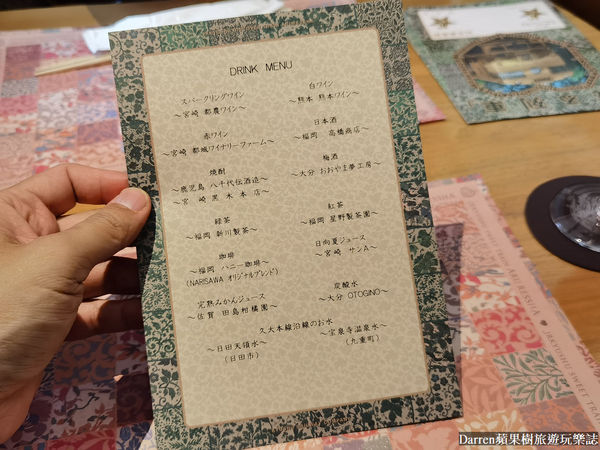 DRINK MENU
スパークリングワイン
～宮崎 都農ワイン～
白ワイン
～熊本 熊本ワイン～
赤ワイン
～宮崎 都城ワイナリーファーム～
日本酒
～福岡 高橋商店～
焼酎
～鹿児島 八千代伝酒造～
～宮崎 黒木本店～
梅酒
～大分 おおやま夢工房～
緑茶
～福岡 新川製茶～
紅茶
～福岡 星野製茶園～
珈琲
～福岡 ハニー珈琲～
(NARISAWA オリジナルブレンド)
日向夏ジュース
～宮崎 サンA～
完熟みかんジュース
～佐賀 田島柑橘園～
炭酸水
～大分 OTOGINO～
久大本線沿線のお水
～日田天領水～
(日田市)
～宝泉寺温泉水～
(九重町)
JRKYUSHU SWEET TRA
Darren蘋果樹旅遊玩樂誌